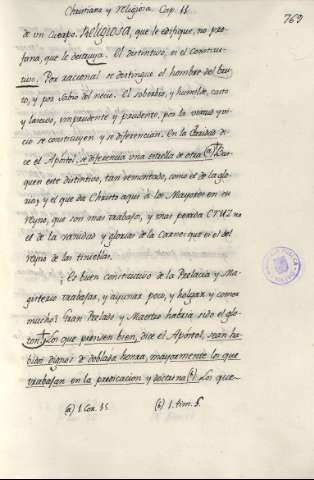 Christiana y religiosa Cap. 11
769
de un Cuerpo. Religiosa, que le edifique, no pro-
fana, que le destruya. El distintivo, es el Constitu-
tivo. Por racional se destingue el hombre del bru-
to, y por sabio del necio. El soberbio, y humilde, casto
y lascivo, imprudente y prudente, por la virtud y vi-
cio se construyen y se diferencian. En la Claridad di-
ce el Apóstol, se diferencia una estrella de otra (a) Bus-
quen este distintivo, tan remontado, como el de la glo-
ria, y el que da Christo aqui à los Mayores en su
reyno, que son mas trabajos, y mas pesada CRUZ no
el de la vanidad y glorias de la Carne: que es el del
reyno de las tinieblas.
Es buen constitutivo de la Prelacia y Ma-
gisterio trabajar, y ayunar poco, y holgar y comer
mucho? Gran Prelado y Maestro habria sido el glo-
ton. Los que presiden bien, dice el Apóstol, sean ha-
bidos dignos de doblada honra, mayormente los que
trabajan en la predicacion y doctrina (b) Los que-
(a) 1 Cor. 15
(b) 1. tim. 5.